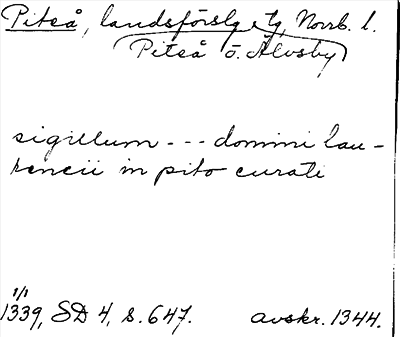 Piteå, landsförslg o. tg, Norrb. l.
(Piteå o. Älvsby)
sigillum --- domini lau-
rencii in pito curati
1/1
1339, SD 4, s. 647. avskr. 1344.